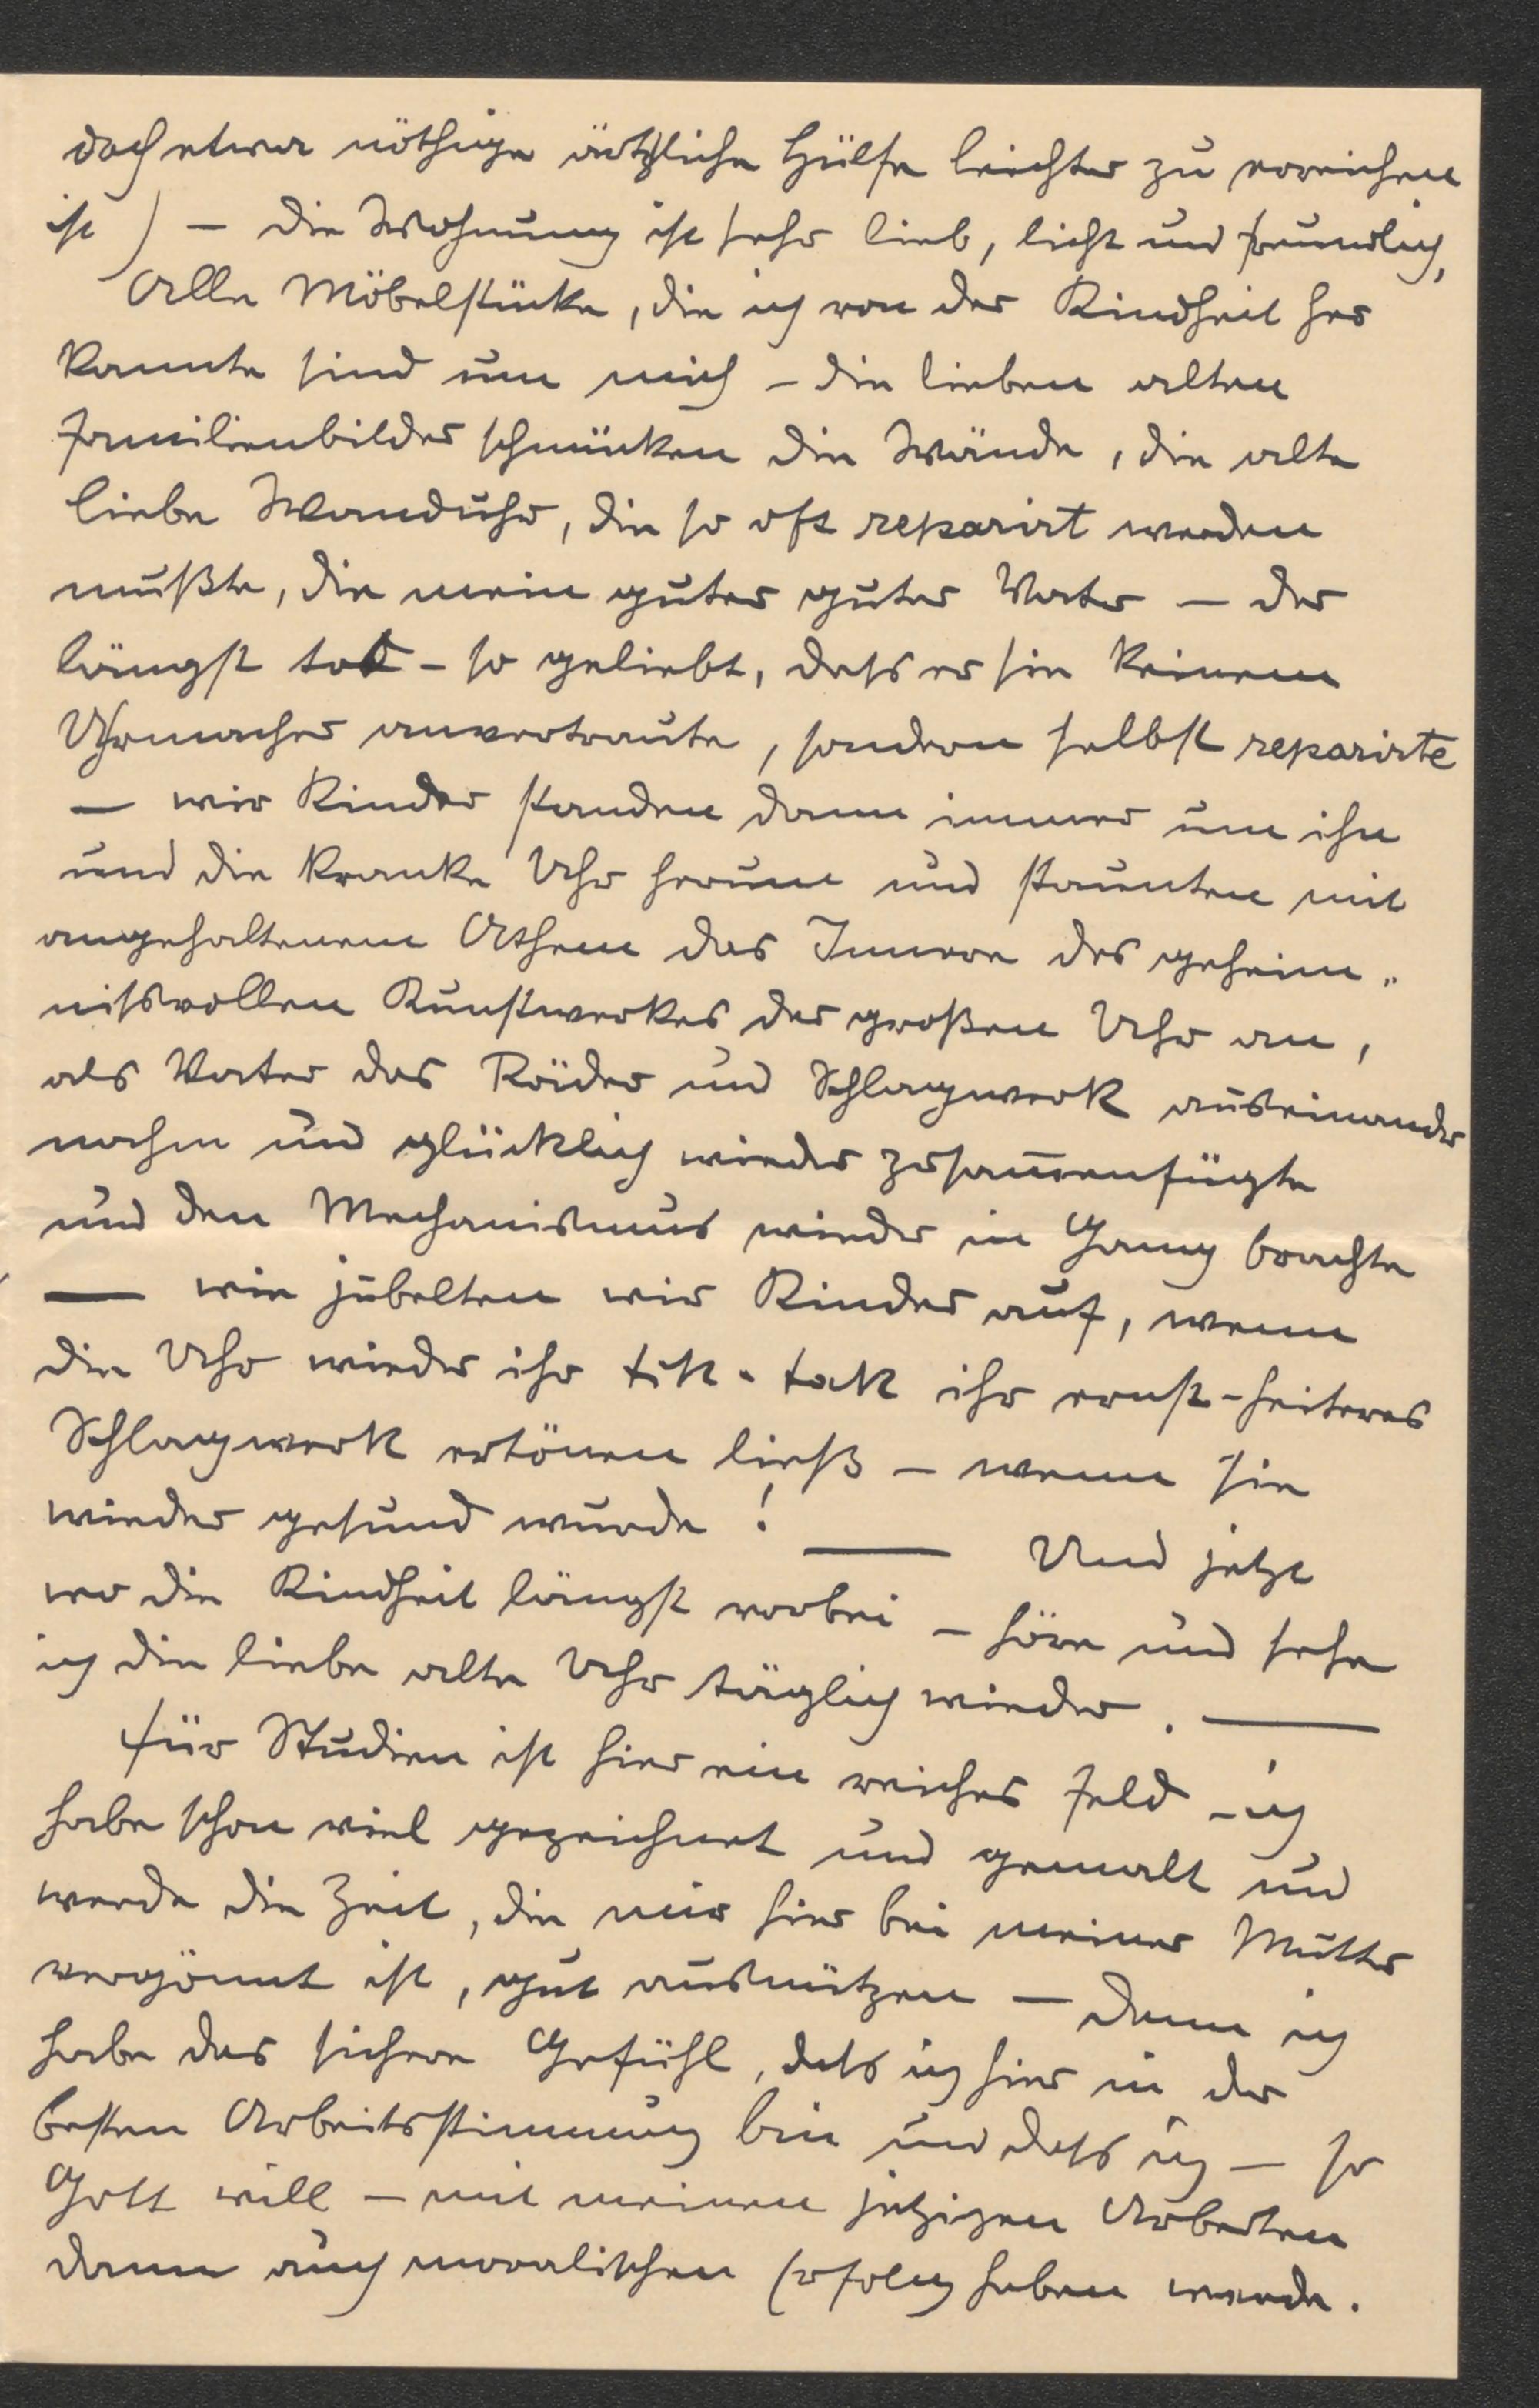 doch etwa nöthige ärtzliche Hülfe leichter zu erreichen
ist ) – die Wohnung ist sehr lieb, licht und freundlich,
Alle Möbelstücke, die ich von der Kindheit her
kannte sind um mich – die lieben alten
Familienbilder schmücken die Wände, die alte
liebe Wanduhr, die so oft reparirt werden
mußte, die mein guter guter Vater – der
längst tot – so geliebt, dass er sie keinem
Uhrmacher anvertraute, sondern selbst reparirte
– wir Kinder standen dann immer um ihn
und die kranke Uhr herum und staunten mit
angehaltenem Athem das Innere des geheim„
nissvollen Kunstwerkes der großen Uhr an,
als Vater das Räder und Schlagwerk auseinander
nahm und glücklich wieder zusam̅enfügte
und den Mechanismus wieder in Gang brachte
— wie jubelten wir Kinder auf, wenn
die Uhr wieder ihr tik-tak ihr ernst-heiteres
Schlagwerk ertönen ließ – wenn sie
wieder gesund wurde ! — Und jetzt
wo die Kindheit längst vorbei – höre und sehe
ich die liebe alte Uhr täglich wieder. —
Für Studien ist hier ein reiches Feld – ich
habe schon viel gezeichnet und gemalt und
werde die Zeit, die mir hier bei meiner Mutter
vergönnt ist, gut ausnützen – denn ich
habe das sichere Gefühl, dass ich hier in der
besten Arbeitsstimmung bin und dass ich – so
Gott will – mit meinen jetzigen Arbeiten
dann auch moralischen Erfolg haben werde.